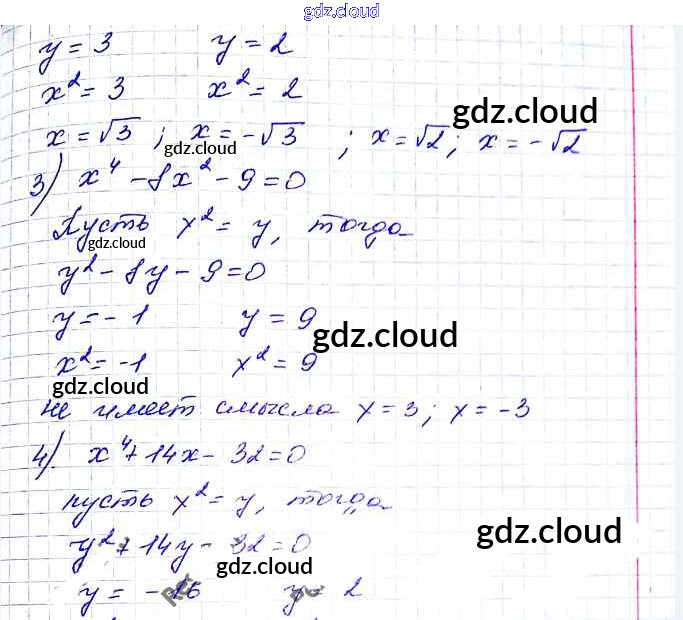 gdz.cloud
y = 3 y = 2
x² = 3 x² = 2
gdz.cloud
x = √3 ; x = -√3 ; x = √2 ; x = -√2
gdz.cloud
3) x⁴ - 8x² - 9 = 0
Пусть x² = y, тогда
gdz.cloud
y² - 8y - 9 = 0
y = -1 y = 9
gdz.cloud
x² = -1 x² = 9
gdz.cloud
не имеет смысла x = 3; x = -3
4). x⁴ + 14x - 32 = 0
пусть x² = y, тогда
gdz.cloud
y² + 14y - 32 = 0
gdz.cloud
y = -16 y = 2